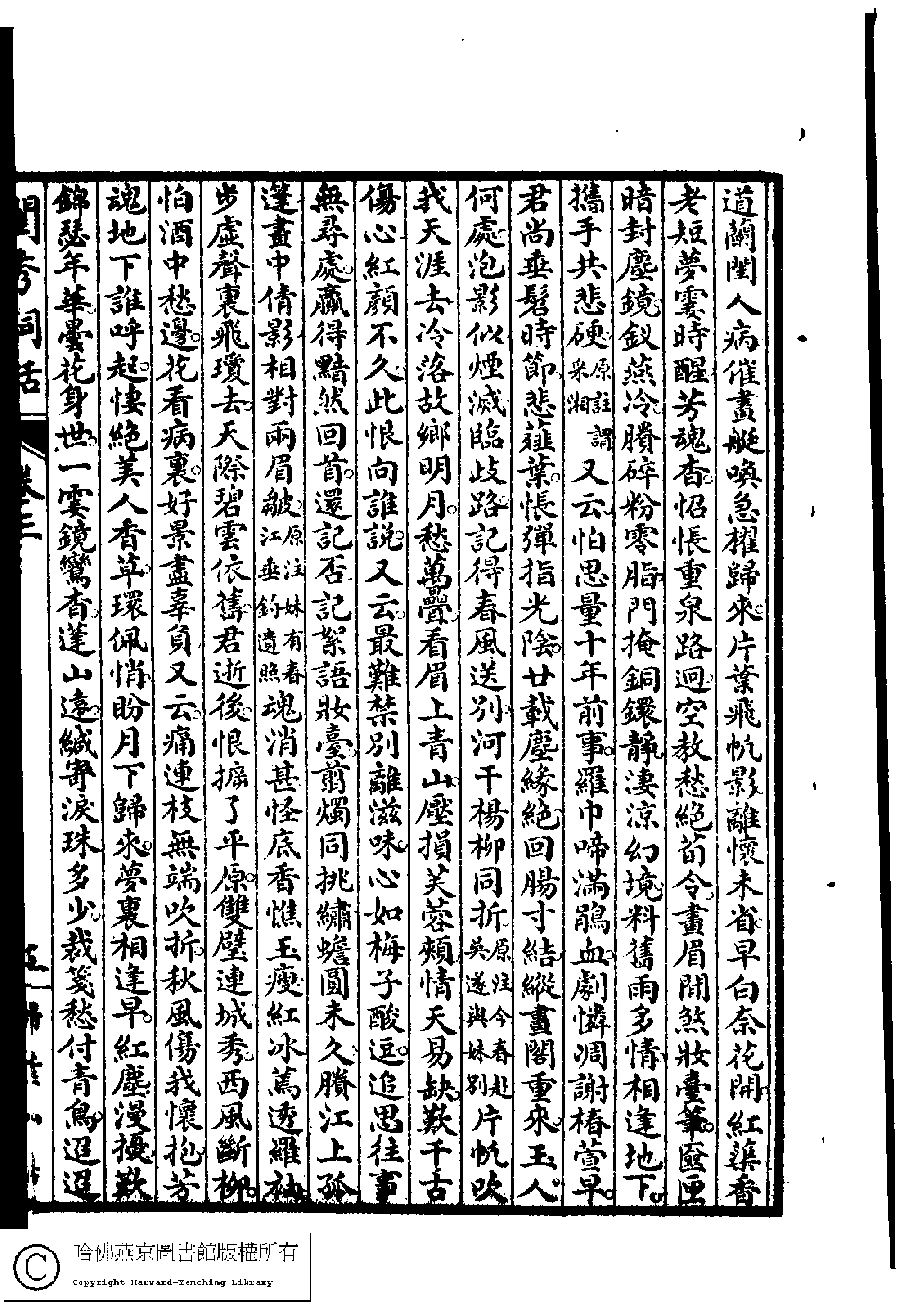 道蘭閨人病催畫艇喚急櫂歸來片葉飛帆影離懷未省早白奈花開紅蕖香
老短夢霎時醒芳魂杳怊悵重泉路迥空教愁絕荀令畫眉閒煞妝臺筆匳匣
暗封塵鏡釵燕冷賸碎粉零脂門掩銅鐶靜淒涼幻境料舊雨多情相逢地下
攜手共悲硬原註謂采湘又云怕思量十年前事羅巾啼滿鵑血劇憐凋謝椿萱早
君尚垂髫時節悲薤葉悵彈指光陰廿載塵緣絕回腸寸結縱畫閣重來玉人
何處泡影似煙滅臨歧路記得春風送別河干楊柳同折原注今春赴吳遂與妹別片帆吹
我天涯去冷落故鄉明月愁萬疊看眉上青山壓損芙蓉頰情天易缺歎千古
傷心紅顏不久此恨向誰說又云最難禁別離滋味心如梅子酸逗追思往事
無尋處贏得黯然回首還記否記絮語妝臺翦燭同挑繡蟾圓未久賸江上孤
篷畫中倩影相對兩眉皺原注妹有春江垂釣遺照魂消甚怪底香憔玉瘦紅冰蔫透羅袖
步虛聲裏飛瓊去天際碧雲依舊君逝後恨摭了平原雙璧連城秀西風斷柳
怕酒中愁邊花看病裏好景盡辜負又云痛連枝無端吹折秋風傷我懷抱芳
魂地下誰呼起悽絕美人香草環佩悄盼月下歸來夢裏相逢早紅塵漫擾歎
錦瑟年華曇花身世一霎鏡鸞杳蓬山遠緘寄淚珠多少裁箋愁付青鳥迢迢
閨秀詞話 卷三
哈佛燕京圖書館版權所有
Copyright Harvard-Yenching Library